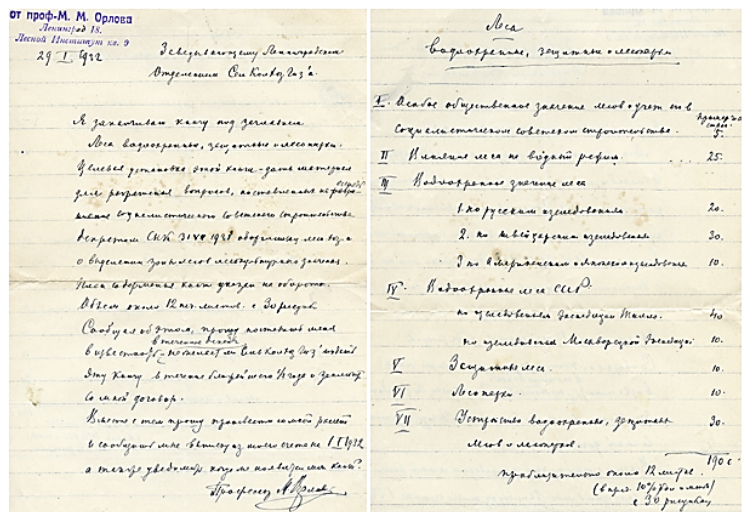 от проф-М. М. Орлова
Ленинград 18.
Лесной Институт кв. 9
29 I 1932
Заведывающему Ленинградским
Отделением Селколхозгиз'а.
Я заканчиваю книгу под заглавием
Леса водоохранные, защитные и лесопарки.
Целевая установка этой книги - дать материал
для разрешения вопросов, поставленных
социалистического советского строительства
декретом СНК 31 VII 1931
о выделении зоны лесов лесокультурного значения.
План содержания книги указан на обороте.
Объем около 12 печ. листов с 30 рисунк.
Сообщая об этом, прошу поставить меня
в течение декады
в известность - не желает ли Селколхозгиз издать
эту книгу в течение ближайшего
со мной договор.
Вместе с тем прошу произвести со мной расчет
и сообщить мне выписку из моего счета на 1 I 1932
а также уведомить, когда
Профессор М Орлов
Леса
водоохранные, защитные и лесопарки
I. Особое общественное значение лесов и учет его в
социалистическом советском строительстве. 5.
II Влияние леса на водный режим ... 25.
III Водоохранное значение леса
1. по русским исследованиям 20.
2. по швейцарским исследованиям 30.
3 по Американским и Японским исследованиям 10.
IV. Водоохранные леса СССР.
по исследованиям Экспедиции Тилло. 40
по исследованиям Москворецкой Экспедиции 10.
V Защитные леса. 10.
VI Лесопарки. 10.
VII Устройство водоохранных, защитных 30.
лесов и лесопарков.
190 с
приблизительно около 12 листов.
с 30 рисунках